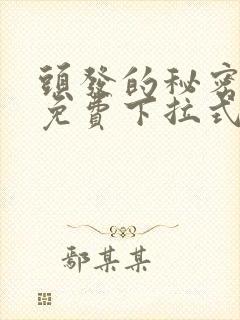 頭發的秘密
免費下拉式
鄢某某